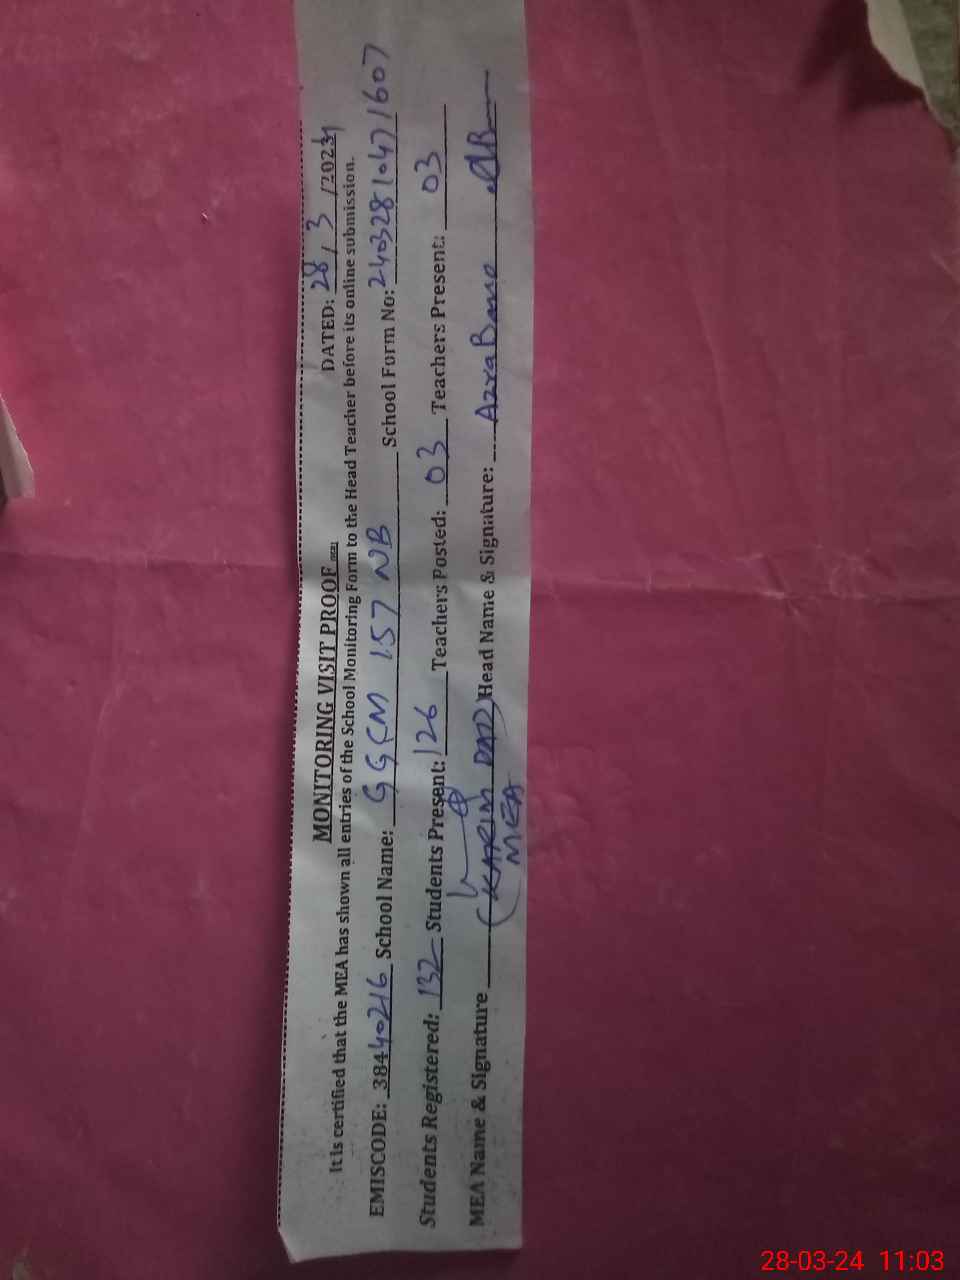 MONITORING VISIT PROOF
DATED: 28 / 3 /2024
It is certified that the MEA has shown all entries of the School Monitoring Form to the Head Teacher before its online submission.
EMISCODE: 38440216 School Name: GGCM 157 NB School Form No: 24032810471607
Students Registered: 132 Students Present: 126 Teachers Posted: 03 Teachers Present: 03
MEA Name & Signature (KARIM DAD) Head Name & Signature: Azra Bano
MEA
28-03-24 11:03